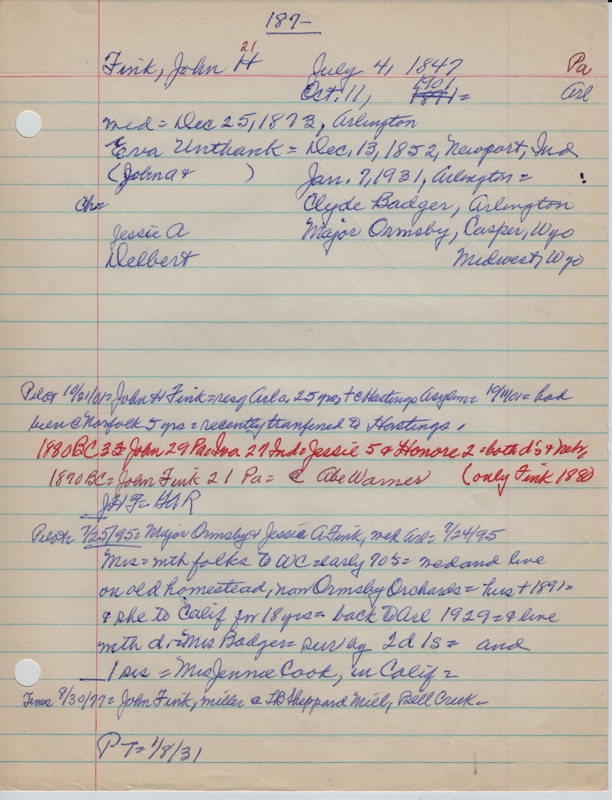 187-
21
Fink, John H July 4, 1847 Pa
Oct. 11, 1901 1891= Arl
med = Dec 25, 1873, Arlington
Eva Unthank = Dec, 13, 1852, Newport, Ind
(John a & ) Jan. 7, 1931, Arlington =
Ch= Clyde Badger, Arlington
Jessie A Major Ormsby, Casper, Wyo
Delbert Midwest, Wyo
Pilot 10/21/01= John H Fink = res of Arl a 25 yrs, + @ Hastings Asylum = 10/11/01 = had
been @ Norfolk 5 yrs = recently tranfered to Hastings.
1880 BC 33 John 29 Pa = Iva 27 Ind = Jessie 5 & Honore 2 = both d's & Neb,
1870 BC = John Fink 21 Pa = @ Abe Warner (only Fink 1880)
JHF = GAR
Pilot = 7/25/95 = Major Ormsby & Jessie A Fink, med Arl = 7/24/95
Mrs = wth folks to WC = early 70's = med and live
on old homestead, now Ormsby Orchards = hus + 1891 =
& she to Calif for 18 yrs = back to Arl 1929 = & live
wth d = Mrs Badger = sur by 2d 1s = and
1 sis = Mrs Jennie Cook, in Calif =
Times 8/30/77 = John Fink, miller @ IB Sheppard Mill, Bell Creek -
PT = 1/8/31